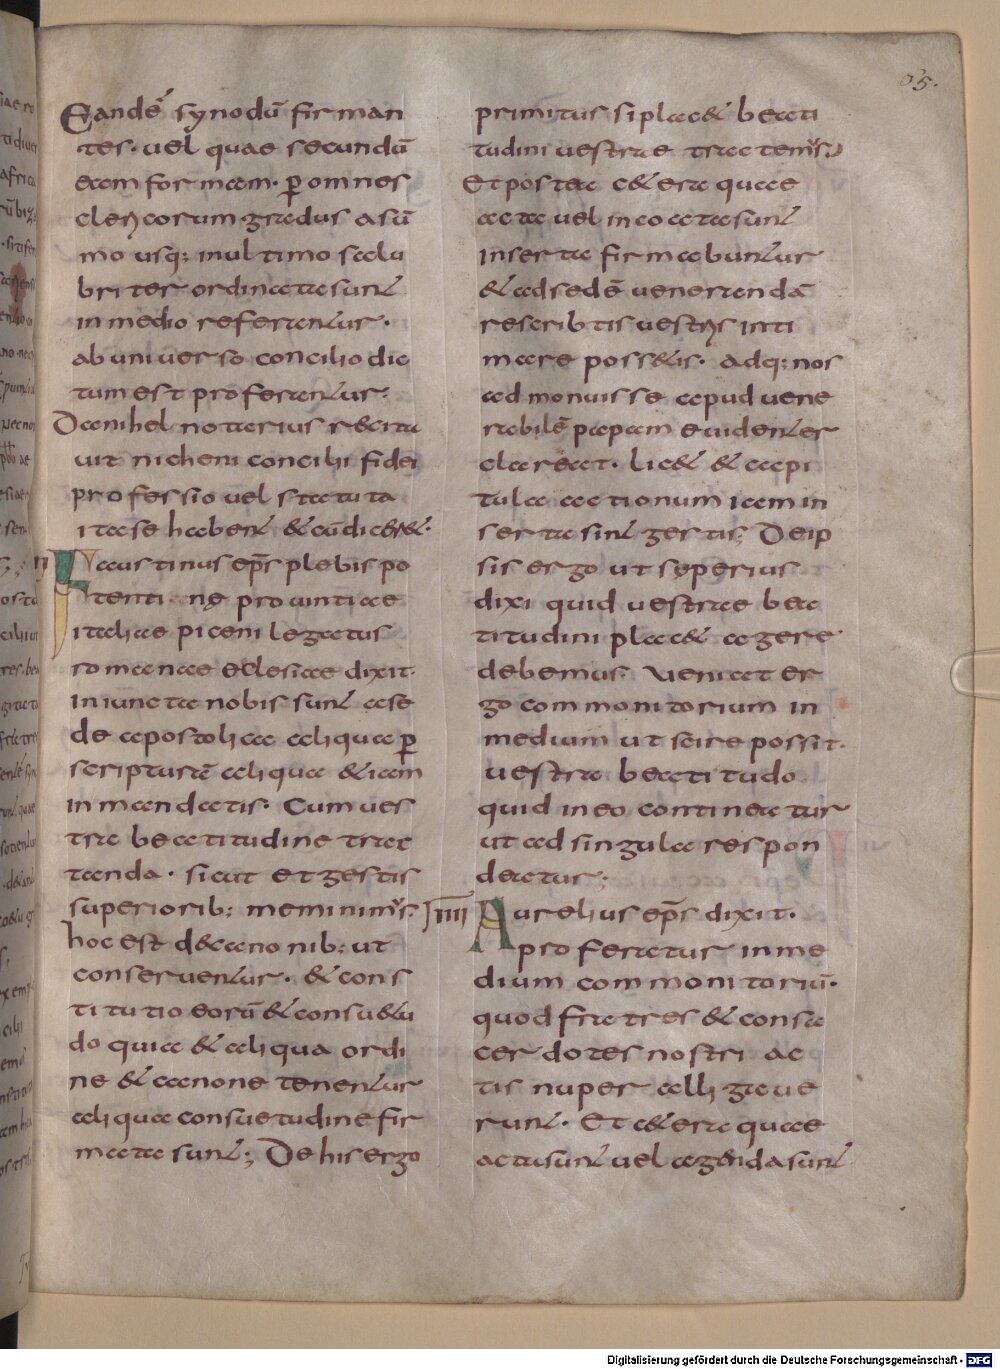 65.
Eandē synodū firman
tes. vel quae secundū
eam formam. ꝑ omnes
clericorum gradus a sū
mo usq; in ultimo salu
briter ordinata sunt
in medio referantur.
ab universo concilio dic
tum est proferantur.
Danihel notarius recita
vit nicheni concilii fidei
professio vel statuta
ita se habent & eū dic&&.
Faustinus eps̄ plebis po
tenti nę provintiae
italiae piceni legatus
romanae eclesiae dixit.
Iniuncta nobis sunt a se
de apostolica aliqua ꝑ
scripturā aliqua & iam
in mandatis. Cum ves
tra beatitudine trac
tanda. sicut et gestis
superiorib: meminimus.
hoc est de canonib: ut
conserventur. & cons
titutio eorū & consu&u
do quia & aliqua ordi
ne & canone tenentur
aliqua consuetudine fir
mata sunt; De his ergo
primitus si plac& beati
tudini vestrae tractemus
Et postea c&era quae
acta vel incoacta sunt
inserta firmabuntur
& ad sedē venerandā
rescribtis vestris inti
mare possitis. adq: nos
ad monuisse apud vene
rabilē papam evidenter
clareat. lic& & capi
tula actionum iam in
serta sint gestis; De ip
sis ergo ut syperius
dixi quid vestrae bea
titudini plac& agere
debemus. Veniat er
go commonitorium in
medium ut scire possit.
vestra beatitudo
quid in eo contineatur
ut ad singula respon
deatur;
IIII Aurelius eps̄ dixit.
proferatur in me
dium commonitoriū.
quod fratres & consa
cerdotes nostri ac
tis nuper alligave
runt. Et c&era quae
acta sunt vel agenda sunt
Digitalisierung gefördert durch die Deutsche Forschungsgemeinschaft - DFG